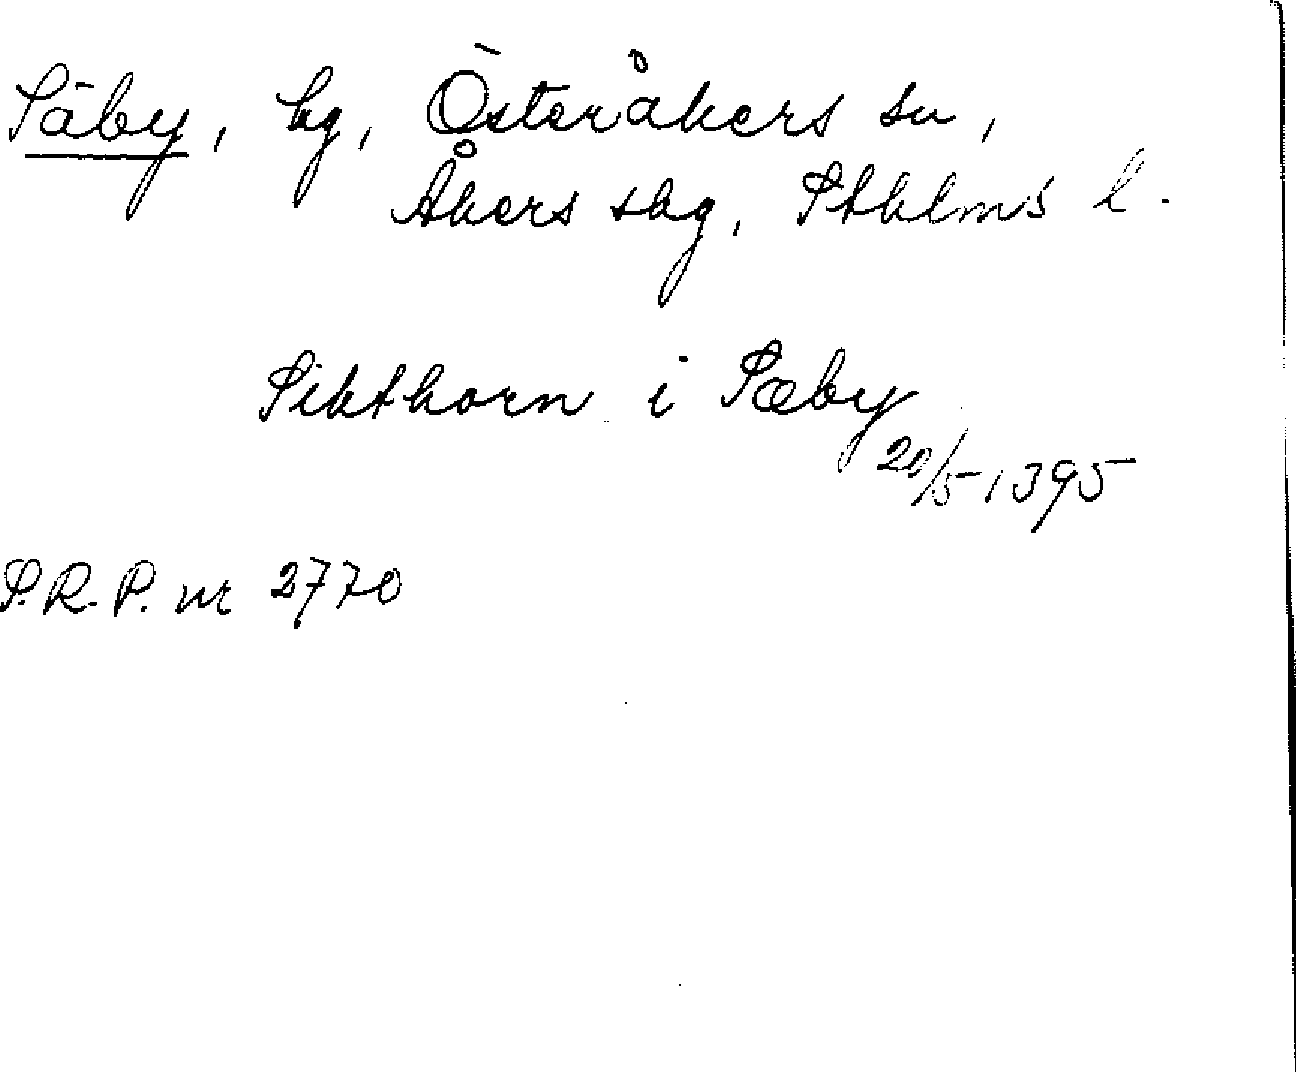 Säby, by, Österåkers sn,
Åkers skg, Sthlms l.
Sikthorn i Sæby
20/5 1395
S.R.P. nr 2770